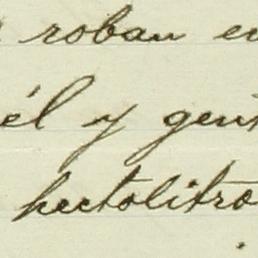 roban en
él y gent
hectolitro